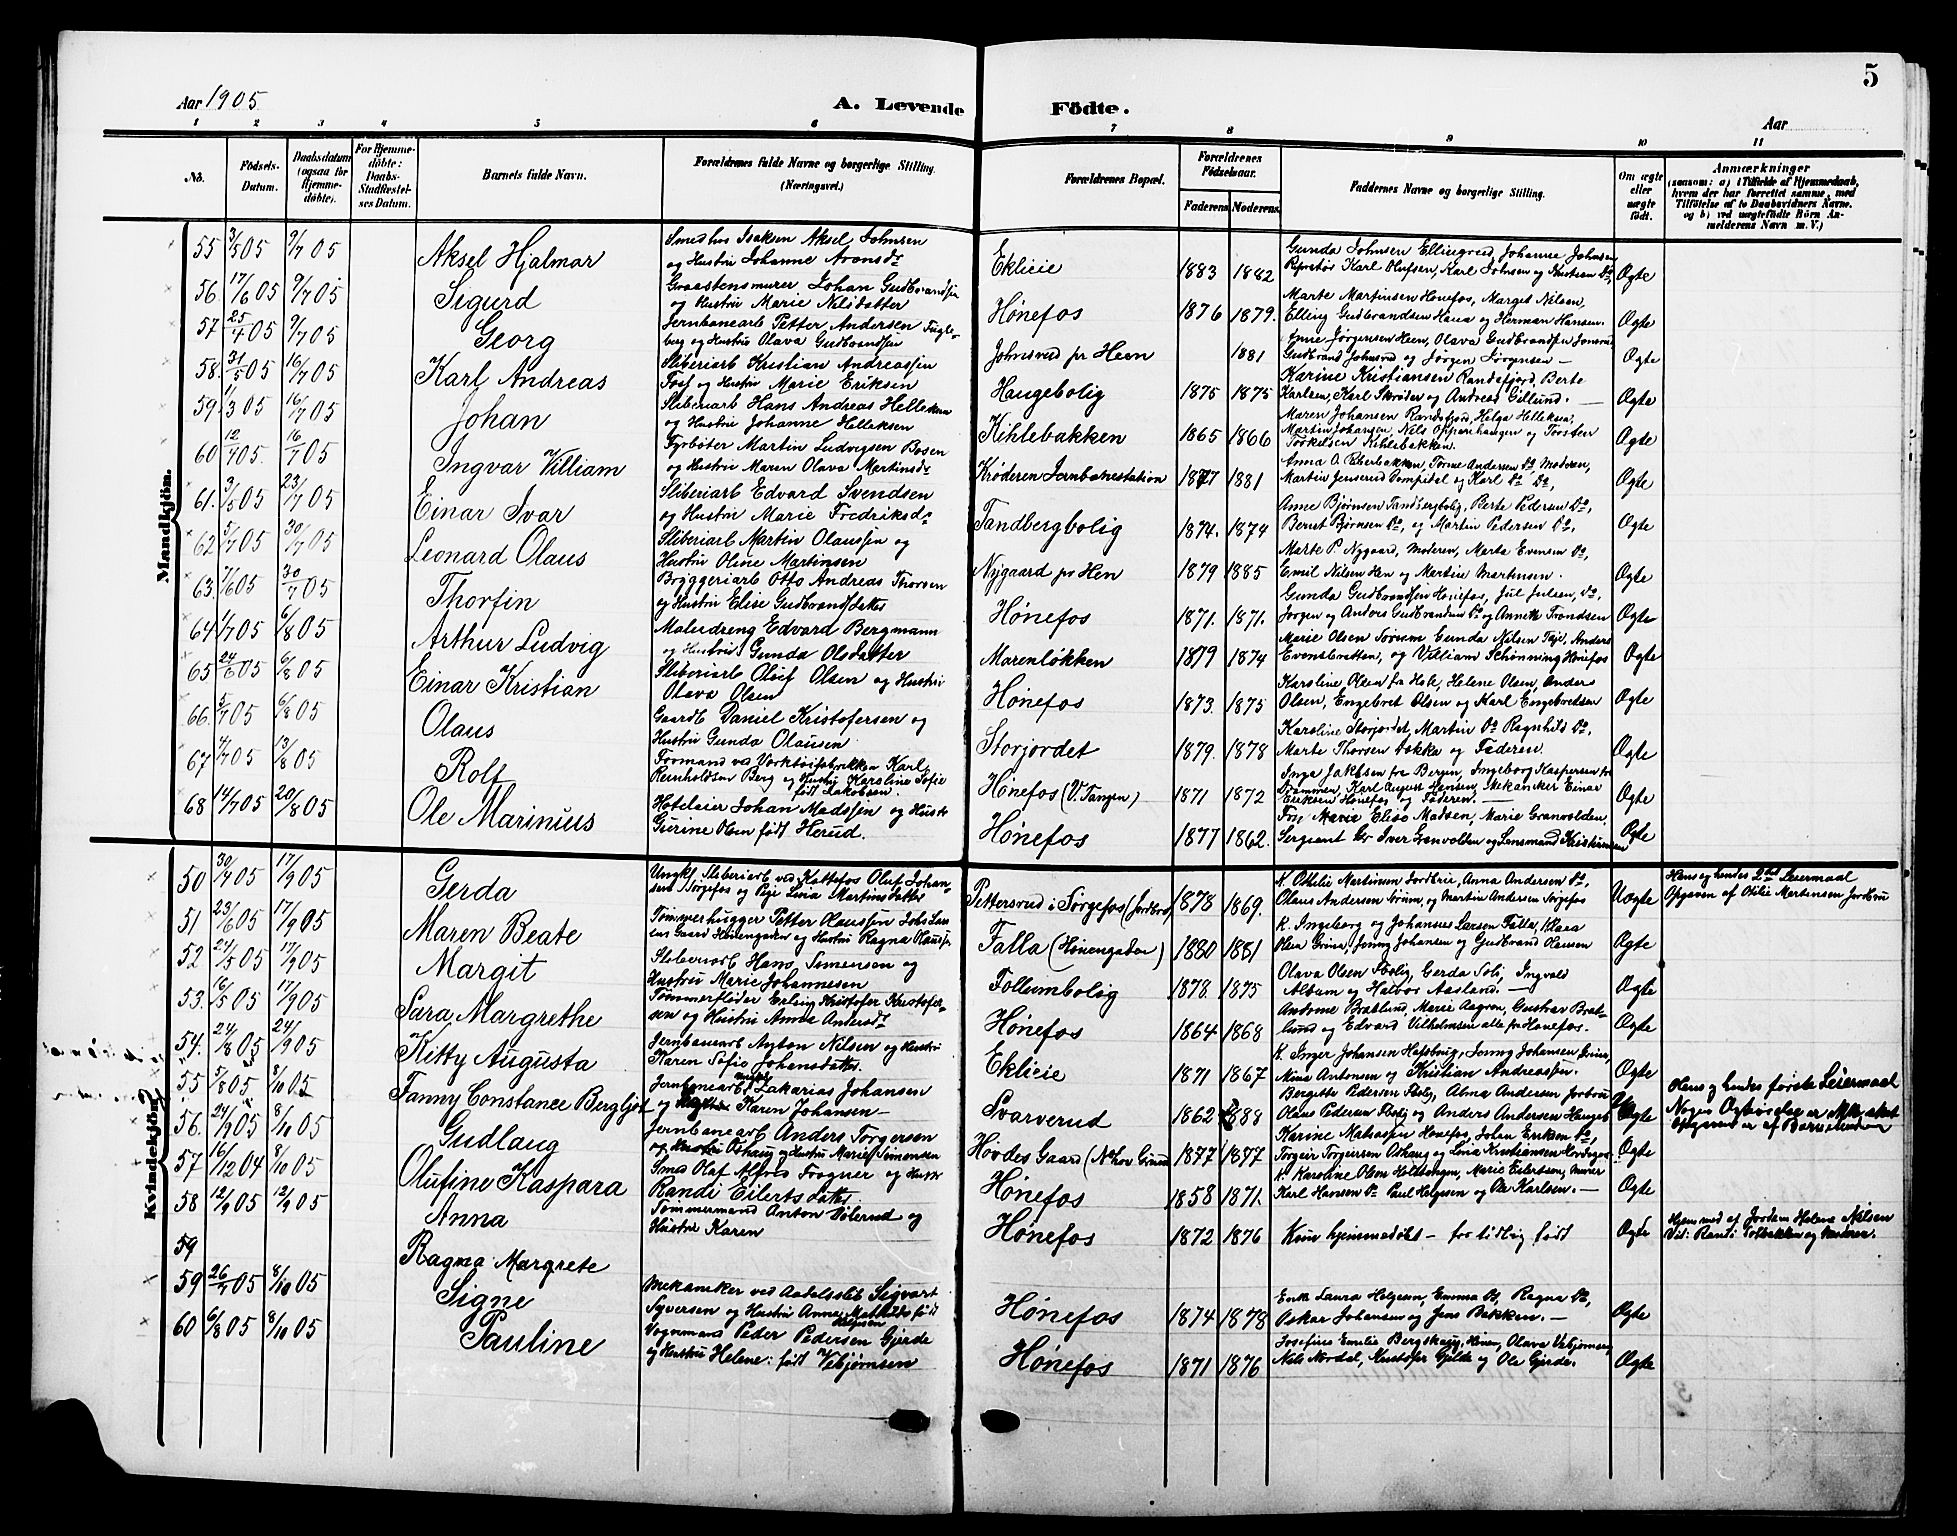 5
Aar 1905.
A. Levende Födte.
Aar
1 2 3 4 5 6 7 8 9 10 11
No.
Födsels-Datum.
Daabsdatum (ogsaa for Hjemmedöbte).
For Hjemmedöbte: Daabs-Stadfæstelses Datum.
Barnets fulde Navn.
Forældrenes fulde Navne og borgerlige Stilling. (Næringsvei.)
Forældrenes Bopæl.
Forældrenes Födselsaar.
Faderens. Moderens.
Faddernes Navne og borgerlige Stilling.
Om ægte eller uægte födt.
Anmærkninger
(saasom: a) i Tilfælde af Hjemmedaab,
hvem der har forrettet samme, med
Tilföielse af to Daabsvidners Navne.
og b) ved uægtefödte Börn Anmelderens Navn m. V.)
Mandkjön.
55 3/5 05 9/7 05 Aksel Hjalmar
Aksel Johnsen
og Hustru Johanne Aronsdr
Eklieie 1883 1882
Gunda Johnsen Ellingsrud, Johanne Johnsen
Karl Olufsen, Karl Johnsen og Knutsen Do, Ægte
56 17/6 05 9/7 05 Sigurd
Graastensmurer Johan Gudbrandsen
og Hustru Marie Nilsdatter
Hönefos 1876 1879.
Marte Martinsen Hönefos, Margit Nilsen,
Elling Gudbrandsen Hana og Herman Hansen. Ægte
57 25/4 05 9/7 05 Georg
Jernbanearb Petter Andersen Fugleberg og Hustru Olava Gudbrandsen
Johnsrud pr Heen 1881
Anne Jörgensen Heen, Olava Gudbrandsen Jonsrud
Gudbrand Johnsrud og Jörgen Jörgensen — Ægte
58. 31/5 05 16/7 05 Karl Andreas
Sliberiarb Kristian Andreassen
Foss og Hustru Marie Eriksen
Haugebolig 1875 1875
Karine Kristiansen Randsfjord, Berte
Karlsen, Karl Skröder og Andreas Gillund. — Ægte
59. 1/3 05 16/7 05 Johan
Sliberiarb Hans Andreas Helleksen
og Hustru Johanne Helleksen
Kihlebakken 1865 1866
Maren Johansen Randsfjord, Helga Helleksen,
Martin Johansen, Nils Opperhaugen og Torsten
Torkelsen Kihlebakken. Ægte
60 12/4 05. 16/7 05 Ingvar William
Fyrböter Martin Ludvigsen Bosen
og Hustru Maren Olava Martinsdr
Kröderen Jernbanestation 1877 1881
Moderen,
Martin Jenserud og Karl Do Do, Ægte
61. 3/5 05 23/7 05 Einar Ivar
Sliberiarb Edvard Svendsen
og Hustru Marie Fredriksdr
Tandbergbolig 1874. 1874
Anne Björnsen Tandbergbolig, Berte Pedersen Do,
Bernt Björnsen Do, og Martin Pedersen Do, Ægte
62 5/7 05 30/7 05 Leonard Olaus
Sliberiarb Martin Olaussen og
Hustru Oline Martinsen
Nygaard pr Hen 1879 1885
Marte P. Nygaard, Moderen, Marta Evensen Do,
Emil Nilsen Hen og Martin Martinsen. Ægte
63. 7/6 05 30/7 05 Thorfin
Bryggeriarb Otto Andreas Thorsen
og Hustru Elise Gudbrandsdatter
Hönefos 1871. 1871.
Gunda Gudbrandsen Hönefos, Jul Julsen, Do,
Jörgen og Anders Gudbrandsen Do og Annette Trondsen Ægte
64 1/7 05 6/8 05 Arthur Ludvig
Maludreng Edvard Bergmann
og Hustru Gunda Olsdatter
Marenlökken 1879 1874
Marie Olsen Sörum Gunda Nilsen Anders
Evensbraaten, og William Schönning Hönefos Ægte
65 24/6 05 6/8 05 Einar Kristian
Sliberiarb Oluf Olsen og Hustru
Olava Olsen
Hönefos 1873. 1875
Karoline Olsen fra Hok, Helene Olsen, Anders
Olsen, Engebret Olsen og Karl Engebretsen Ægte
66. 5/7 05 6/8 05 Olaus
Gaardb Daniel Kristofersen og
Hustru Gunda Olausen
Storjordet 1879. 1878
Karoline Storjordet, Martin Do Ragnhild Do,
Marte Thorsen Lökka og Faderen. Ægte
67 4/7 05 13/8 05 Rolf
Formand ved Værktöifabrikken Karl
Reinholdsen Berg og Hustru Karoline Sofie
födt Jakobsen.
Hönefos (V. Tangen) 1871 1872
Inga Jakobsen fra Bergen, Ingeborg Kaspersen fra
Drammen, Karl August Hansen, Mekaniker Einar
Eriksen Hönefos og Faderen. — Ægte
68 14/7 05 20/8 05 Ole Marinius
Hotelleier Johan Madssen og Hustru
Gurine Olsen födt Herud.
Hönefos 1877 1862.
Frk Marie Elise Madsen, Marie Granvolden,
Sergeant Iver Granvolden og Lensmand Kristiansen Ægte
Kvindekjön.
50 30/7 05 17/9 05 Gerda
Ungk. Sliberiarb ved Kattefos Oluf Johansen Sörgefos og Pige Lina Martinsdatter
Pettersrud i Sörgefos (Jordbru) 1878 1869.
K. Othilie Martinsen Jordbru, Anna Andersen Do,
Olaus Andersen Strum, og Martin Andersen Sörgefos Uægte
Hans og hendes 2det Leiermaal
Opgaven af Otilie Martinsen Jordbru
51 23/6 05 17/9 05 Maren Beate
Tömmerhugger Petter Olaussen
Gaard Hönengaden og Hustru Ragna Olaussen
Falla (Hönengaden) 1880 1881
K. Ingeborg og Johannes Larsen Falla, Klara
Olea Grina, Jenny Johansen og Gudbrand Olaussen Ægte
52 24/5 05 17/9 05 Margit
Sliberiarb Hans Simensen og
Hustru Marie Johannesen
Follumbolig 1878. 1875
Olava Olsen Gerda Ingvald
Album og Halvor Aasland. — Ægte
53. 16/5 05 17/9 05 Sara Margrethe
Tömmerflöder Erling Kristofer Kristofersen og Hustru Anna Andersdr
Hönefos 1864 1868
Marie Aagren, Gustav Bratlund og Edvard Vilhelmsen alle pr Hönefos. Ægte
54. 24/8 05 24/9 05 Kitty Augusta
Jernbanearb Anton Nilsen og Hustru
Karen Sofie Johansdatter
Eklieie 1871 1867
K. Inger Johansen Hofsbrug, Jenny Johansen,
Nina Antonsen og Kristian Andreassen. Ægte
55 5/8 05 8/10 05 Fanny Constance Bergljot
Jernbanearb Zakarias Johansen
og Karen Johansen —
Svarverud 1862 1888
Bergitte Pedersen Alma Andersen Jorbru
Olaus Pedersen og Anders Andersen Ægte
Hans og hendes förste Leiermaal
56. 24/9 05 8/10 05 Gudlaug
Jernbanearb Anders Torgersen
og Hustru Marie Simensen
Hövdes Gaard 1877 1877
Karine Matiassen Hönefos, Johan Eriksen Do,
Torgeir Torgeirsen og Lina Kristiansen Ægte
57 16/12 04 8/10 05 Olufine Kaspara
Smed Olaf Alfred Frogner og Hustr
Randi Eilertsdatter
Hönefos 1858 1871.
K. Karoline Olsen Marie Eilertsen, Murer
Karl Hansen Do Paul Helgesen og Ole Karlsen. — Ægte
58 12/9 05 12/9 05 Anna
Tömmermand Anton Dölerud og
Hustru Karen
Hönefos 1872 1876
Kun hjemmedöbt — for tidlig födt Ægte
Hjemmed. af Jordem Helene Nilsen
Vid: Randi og Moderen.
59
Ragna Margrete
59 26/7 05 8/10 05 Signe
Mekaniker ved Aadalsslib Sigvart
Syversen og Hustru Anna Mathilde födt
Hönefos 1874 1878
Enke Laura Helgesen, Emma Do, Ragna Do,
Oskar Johansen og Jens Bakken. — Ægte
60 6/8 05 8/10 05 Pauline
Vognmand Peder Pedersen Gjerde
og Hustru Helene: födt Vebjörnsen
Hönefos 1871 1876
Josefine Emilie Bergskaug, Olava Vebjörnsen
Nils Nordal, Kristofer Gjelde og Ole Gjerde. Ægte